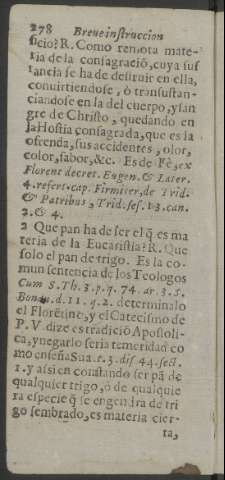 278 Breue instruccion
ficio? R. Como remota mate-
ria de la consagració, cuya sus
tancia se ha de destruir en ella,
convirtiendose, ò transustan-
ciandose en la del cuerpo, y san
gre de Christo, quedando en
la Hostia consagrada, que es la
ofrenda, sus accidentes, olor,
color, sabor, &c. Es de Fè, ex
Florent decret. Eugen. & Later.
4. refert. cap. Firmiter, de Trid.
& Patribus, Trid. ses. 13. can.
2. & 4.
2 Que pan ha de ser el q̃ es ma
teria de la Eucaristia? R. Que
solo el pan de trigo. Es la co-
mun sentencia de los Teologos
Cum S. Th. 3. p. q. 74. ar. 3. S.
Bonau. d. 11. q. 2. determinalo
el Florẽtino, y el Catecismo de
P. V. dize es tradiciõ Apostoli-
ca, y negarlo seria temeridad co
mo enseña Sua. t. 3. dis. 44. sect.
1. y assi en constando ser pã de
qualquier trigo, ò de qualquie
ra especie q̃ se engendra de tri
go sembrado, es materia cier-
ta,